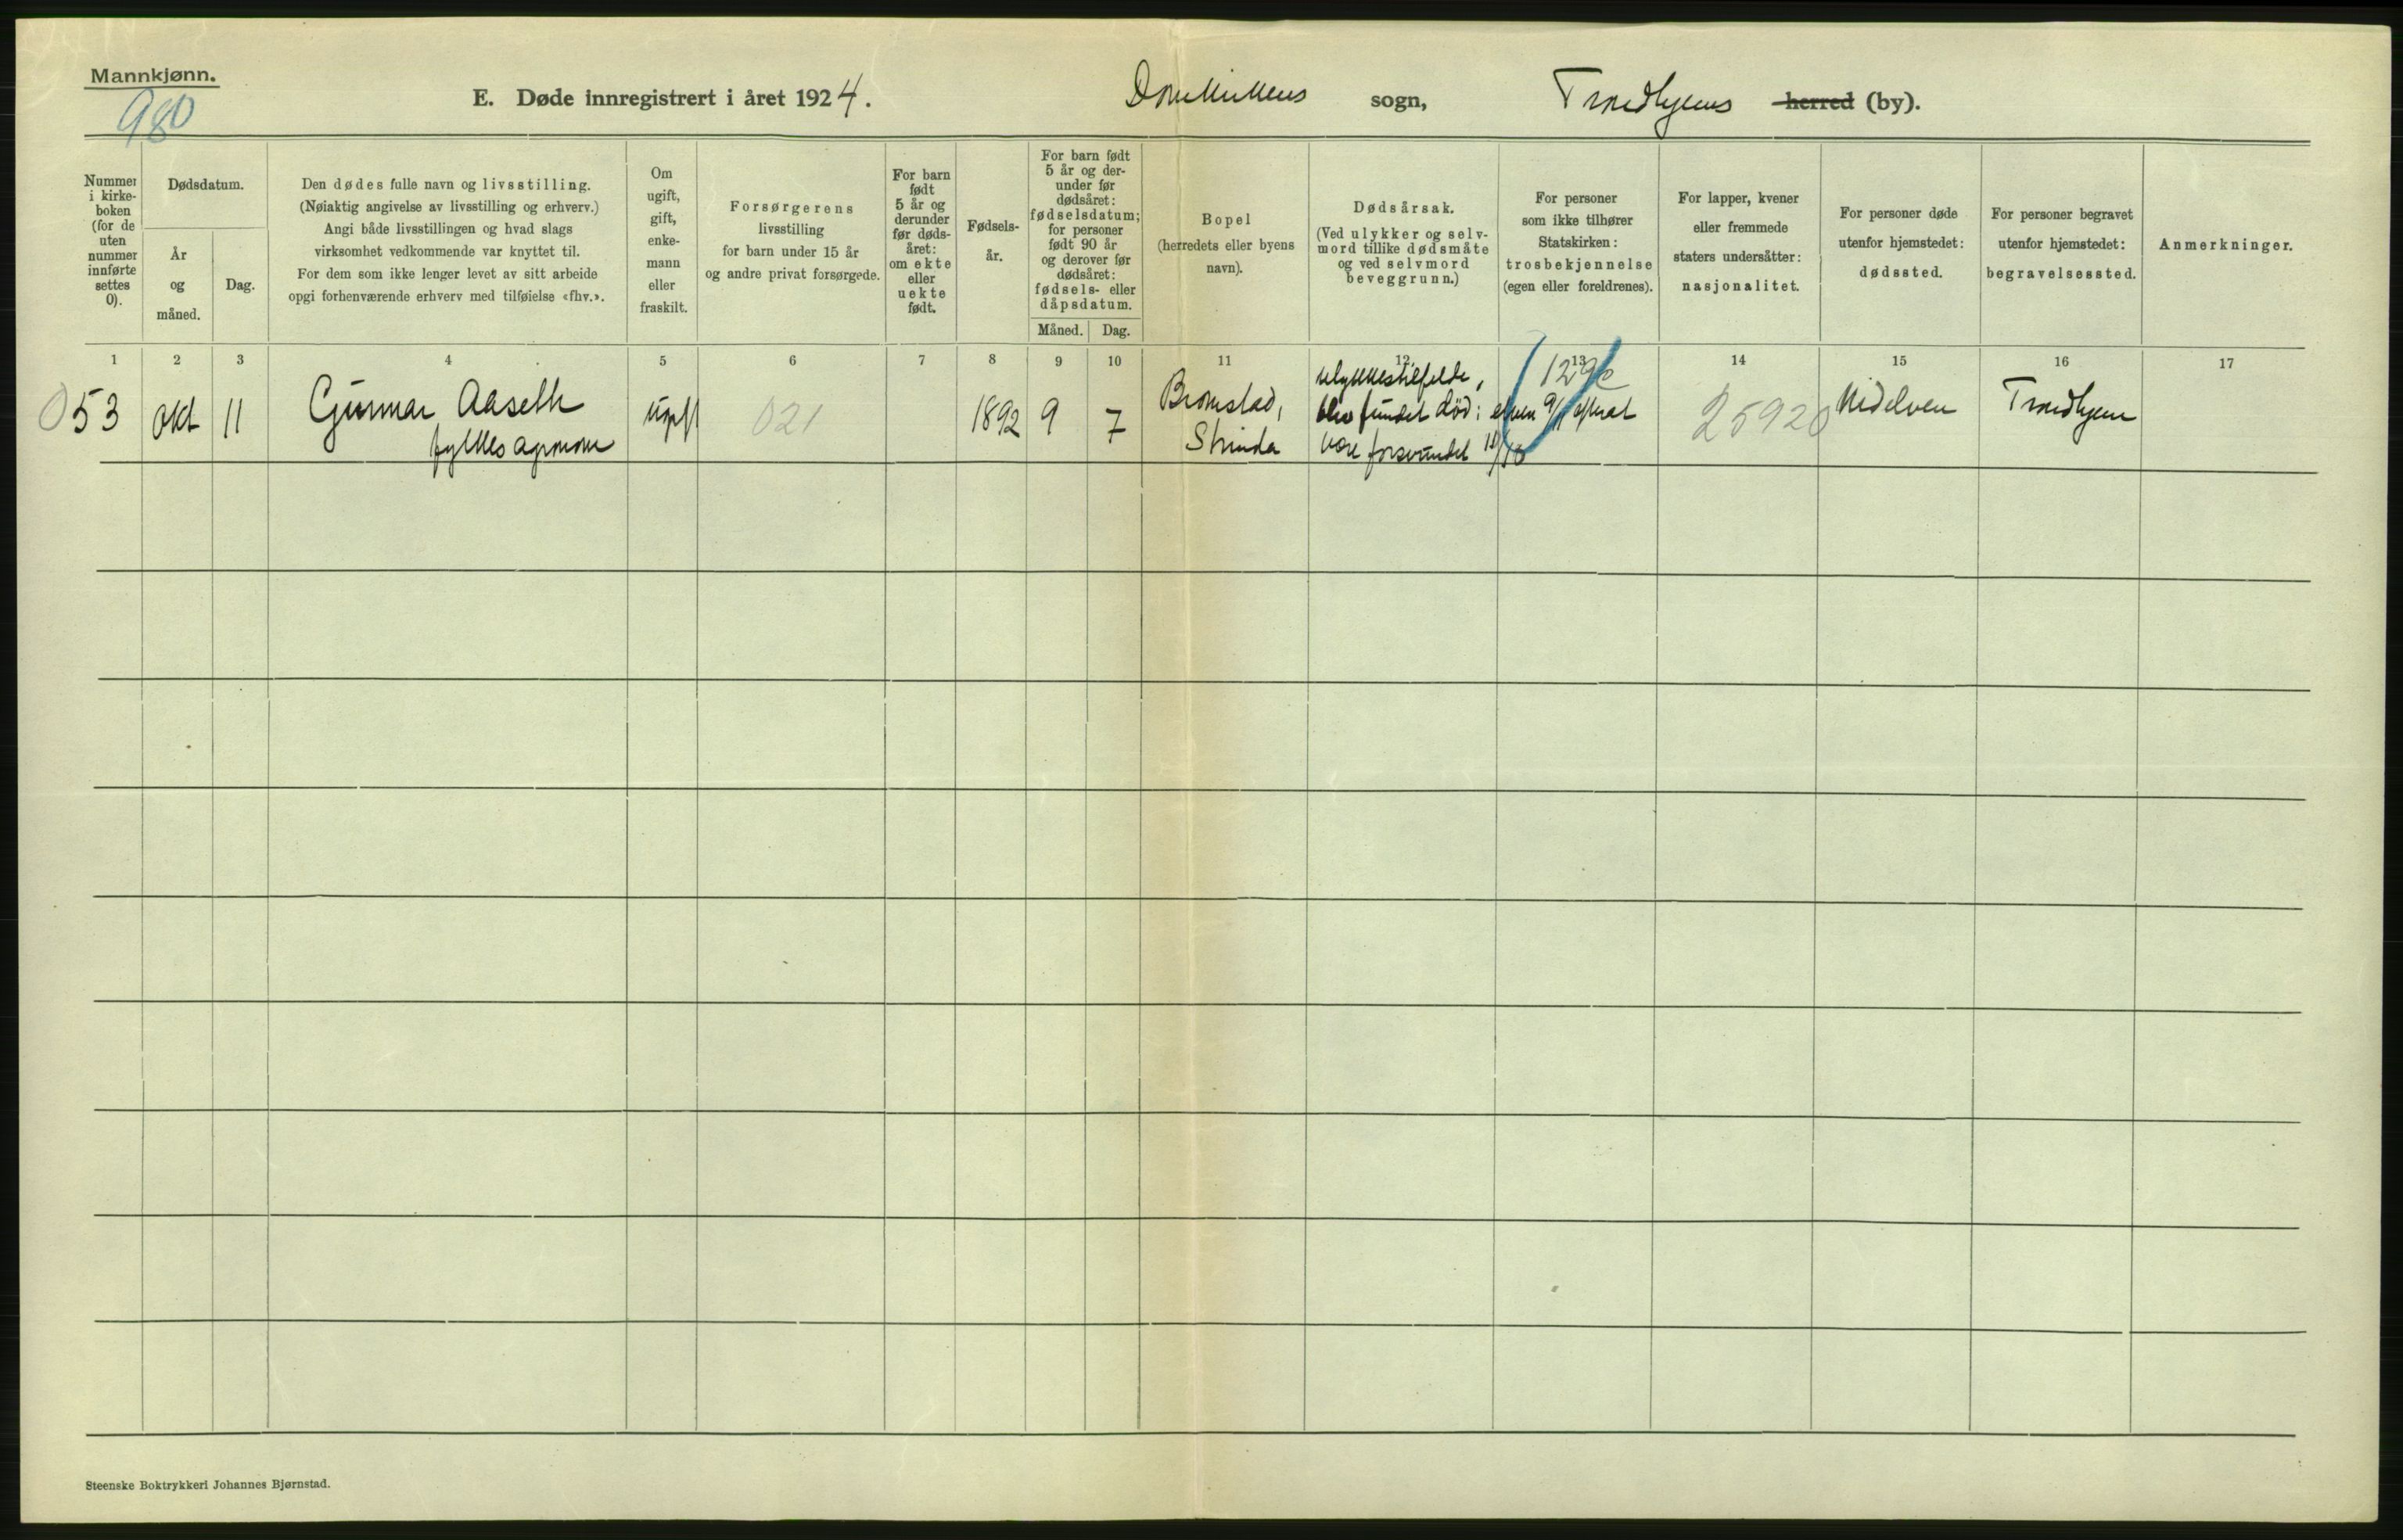 Mannkjønn.
980
E. Døde innregistrert i året 1924.
Domkirkens sogn, Trondhjems herred (by).
Nummer i kirke- boken (for de uten nummer innførte settes 0).
Dødsdatum.
År og måned.
Dag.
Den dødes fulle navn og livsstilling.
(Nøiaktig angivelse av livsstilling og erhverv.)
Angi både livsstillingen og hvad slags
virksomhet vedkommende var knyttet til.
For dem som ikke lenger levet av sitt arbeide
opgi forhenværende erhverv med tilføielse «fhv.».
Om ugift, gift, enke- mann eller fraskilt.
Forsørgerens
livsstilling
for barn under 15 år
og andre privat forsørgede.
For barn født 5 år og derunder før døds- året: om ekte eller uekte født.
Fødsels- år.
For barn født 5 år og der- under før dødsåret: fødselsdatum; for personer født 90 år og derover før dødsåret: fødsels- eller dåpsdatum.
Måned. Dag.
Bopel
(herredets eller byens
navn).
Dødsårsak.
(Ved ulykker og selv-
mord tillike dødsmåte
og ved selvmord
beveggrunn.)
For personer
som ikke tilhører
Statskirken:
trosbekjennelse
(egen eller foreldrenes).
For lapper, kvener
eller fremmede
staters undersåtter:
nasjonalitet.
For personer døde
utenfor hjemstedet:
dødssted.
For personer begravet
utenfor hjemstedet:
begravelsessted.
Anmerkninger.
1 2 3 4 5 6 7 8 9 10 11 12 13 14 15 16 17
053 okt 11
Gunnar Aaseth
fylkesagronom
ugift
021
1892 9 7
Bromstad,
Strinda
ulykkestilfelde,
blev fundet død i elven 9/11 efterat
være forsvundet 11/10
129c
25920
Nidelven
Trondhjem
Steenske Boktrykkeri Johannes Bjørnstad.